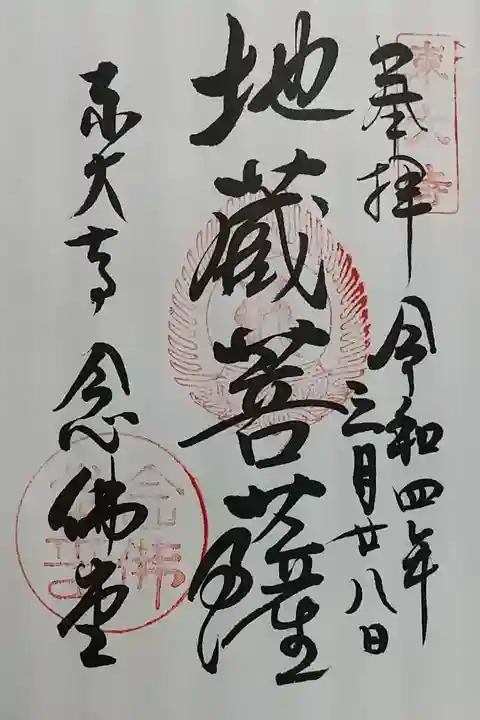 奉拝
令和四年
三月廿八日
地蔵菩薩
東大寺 念佛堂
東大寺